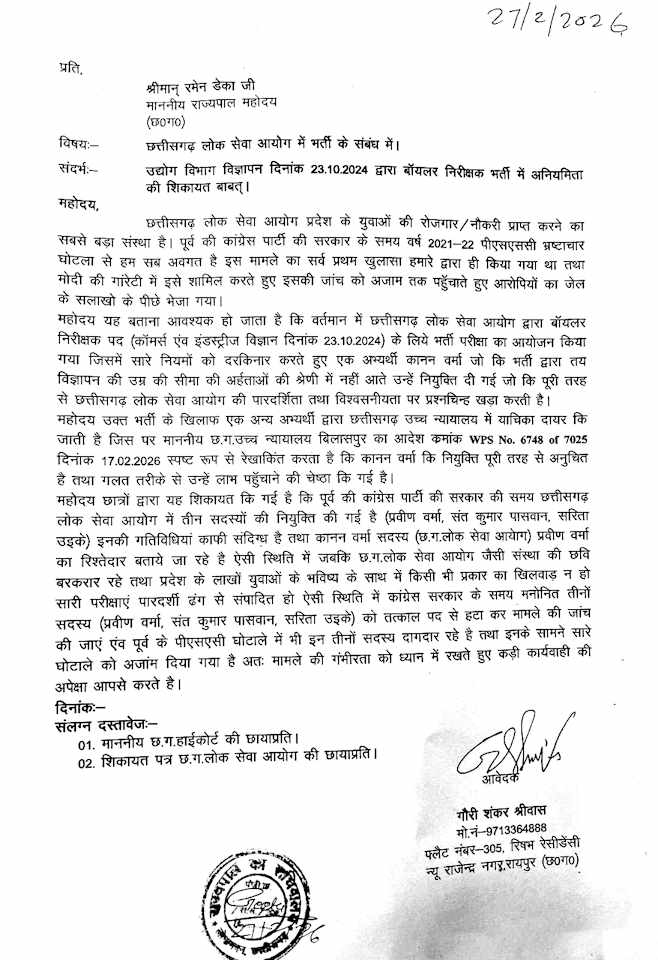 27/2/2026
प्रति,
श्रीमान् रमेन डेका जी
माननीय राज्यपाल महोदय
(छ0ग0)
विषयः– छत्तीसगढ़ लोक सेवा आयोग में भर्ती के संबंध में।
संदर्भः– उद्योग विभाग विज्ञापन दिनांक 23.10.2024 द्वारा बॉयलर निरीक्षक भर्ती में अनियमिता
की शिकायत बाबत्।
महोदय,
छत्तीसगढ़ लोक सेवा आयोग प्रदेश के युवाओं की रोजगार/नौकरी प्राप्त करने का
सबसे बड़ा संस्था है। पूर्व की कांग्रेस पार्टी की सरकार के समय वर्ष 2021–22 पीएसएससी भ्रष्टाचार
घोटला से हम सब अवगत है इस मामले का सर्व प्रथम खुलासा हमारे द्वारा ही किया गया था तथा
मोदी की गांरेटी में इसे शामिल करते हुए इसकी जांच को अजाम तक पहुँचाते हुए आरोपियों का जेल
के सलाखो के पीछे भेजा गया।
महोदय यह बताना आवश्यक हो जाता है कि वर्तमान में छत्तीसगढ़ लोक सेवा आयोग द्वारा बॉयलर
निरीक्षक पद (कॉमर्स एंव इंडस्ट्रीज विज्ञान दिनांक 23.10.2024) के लिये भर्ती परीक्षा का आयोजन किया
गया जिसमें सारे नियमों को दरकिनार करते हुए एक अभ्यर्थी कानन वर्मा जो कि भर्ती द्वारा तय
विज्ञापन की उम्र की सीमा की अर्हताओं की श्रेणी में नहीं आते उन्हें नियुक्ति दी गई जो कि पूरी तरह
से छत्तीसगढ़ लोक सेवा आयोग की पारदर्शिता तथा विश्वसनीयता पर प्रश्नचिन्ह खड़ा करती है।
महोदय उक्त भर्ती के खिलाफ एक अन्य अभ्यर्थी द्वारा छत्तीसगढ़ उच्च न्यायालय में याचिका दायर कि
जाती है जिस पर माननीय छ.ग.उच्च न्यायालय बिलासपुर का आदेश कमांक WPS No. 6748 of 7025
दिनांक 17.02.2026 स्पष्ट रूप से रेखाकिंत करता है कि कानन वर्मा कि नियुक्ति पूरी तरह से अनुचित
है तथा गलत तरीके से उन्हें लाभ पहुँचाने की चेष्ठा कि गई है।
महोदय छात्रों द्वारा यह शिकायत कि गई है कि पूर्व की कांग्रेस पार्टी की सरकार की समय छत्तीसगढ़
लोक सेवा आयोग में तीन सदस्यों की नियुक्ति की गई है (प्रवीण वर्मा, संत कुमार पासवान, सरिता
उइके) इनकी गतिविधियां काफी संदिग्ध है तथा कानन वर्मा सदस्य (छ.ग.लोक सेवा आयेाग) प्रवीण वर्मा
का रिश्तेदार बताये जा रहे है ऐसी स्थिति में जबकि छ.ग.लोक सेवा आयोग जैसी संस्था की छवि
बरकरार रहे तथा प्रदेश के लाखों युवाओं के भविष्य के साथ में किसी भी प्रकार का खिलवाड़ न हो
सारी परीक्षाएं पारदर्शी ढंग से संपादित हो ऐसी स्थिति में कांग्रेस सरकार के समय मनोनित तीनों
सदस्य (प्रवीण वर्मा, संत कुमार पासवान, सरिता उइके) को तत्काल पद से हटा कर मामले की जांच
की जाएं एंव पूर्व के पीएसएसी घोटाले में भी इन तीनों सदस्य दागदार रहे है तथा इनके सामने सारे
घोटाले को अजांम दिया गया है अतः मामले की गंभीरता को ध्यान में रखते हुए कड़ी कार्यवाही की
अपेक्षा आपसे करते है।
दिनांकः–
संलग्न दस्तावेजः–
01. माननीय छ.ग.हाईकोर्ट की छायाप्रति।
02. शिकायत पत्र छ.ग.लोक सेवा आयोग की छायाप्रति।
आवेदक
गौरी शंकर श्रीवास
मो.नं–9713364888
फ्लैट नंबर–305, रिषभ रेसीडेंसी
न्यू राजेन्द्र नगर,रायपुर (छ0ग0)
राज्यपाल का सचिवालय